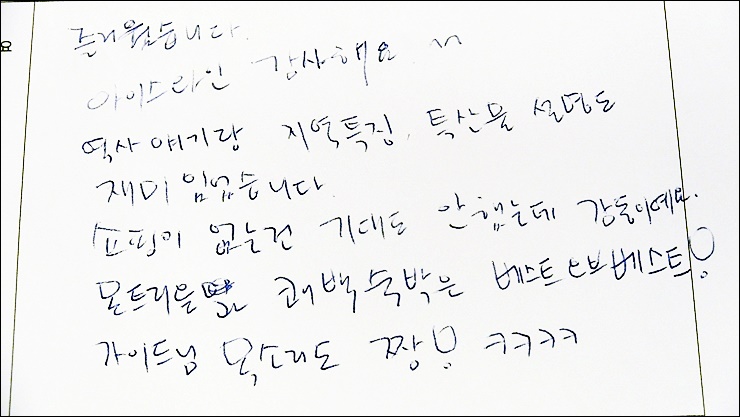 즐거웠습니다.
아이스와인 감사해요. ^^
역사 얘기랑 지역특징, 특산물 설명도
재미있었습니다.
쇼핑이 없는건 기대도 안했는데 감동이예요.
몬트리올과 퀘백 숙박은 베스트오브베스트!
가이드님 목소리도 짱! ㅋㅋㅋㅋ